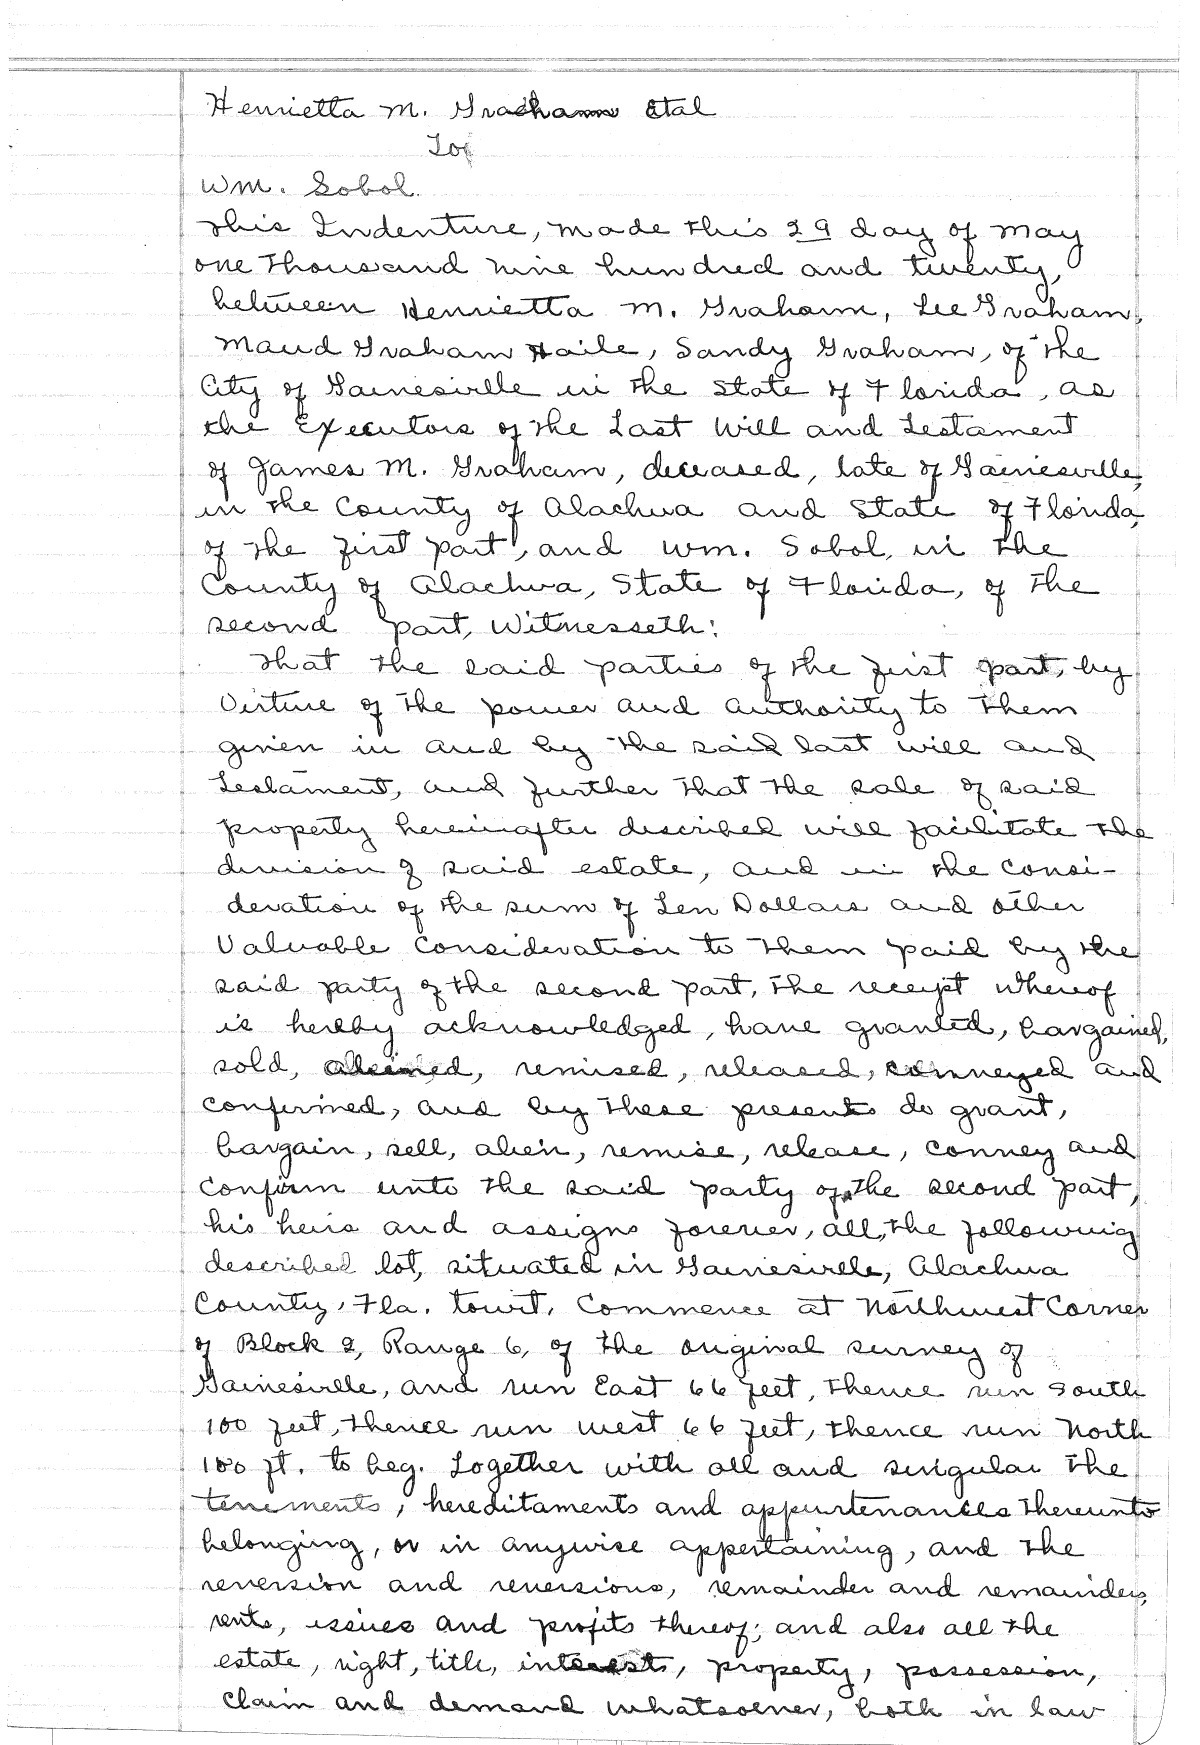 Henrietta M. Graham Etal
To
Wm. Sobol.
This Indenture, made this 29 day of May
one thousand nine hundred and twenty,
between Henrietta M. Graham, Lee Graham,
Maud Graham Haile, Sandy Graham, of the
City of Gainesville in the State of Florida, as
the Executors of the Last Will and Testament
of James M. Graham, deceased, late of Gainesville,
in the County of Alachua and State of Florida,
of the first part, and Wm. Sobol, in the
County of Alachua, State of Florida, of the
second part, Witnesseth:
That the said parties of the first part, by
Virtue of the power and authority to them
given in and by the said last will and
Testament, and further that the sale of said
property hereinafter described will facilitate the
division of said estate, and in the consi-
deration of the sum of Ten Dollars and other
Valuable Consideration to them paid by the
said party of the second part, the receipt whereof
is hereby acknowledged, have granted, bargained,
sold, aliened, remised, released, conveyed and
confirmed, and by these presents do grant,
bargain, sell, alien, remise, release, convey and
confirm unto the said party of the second part,
his heirs and assigns forever, all, the following
described lot, situated in Gainesville, Alachua
County, Fla. towit, Commence at Northwest Corner
of Block 2, Range 6, of the original survey of
Gainesville, and run East 66 feet, thence run South
100 feet, thence run west 66 feet, thence run North
100 ft. to beg. Together with all and singular the
tenements, hereditaments and appurtenances thereunto
belonging, or in anywise appertaining, and the
reversion and reversions, remainder and remainders,
rents, issues and profits thereof; and also all the
estate, right, title, interests, property, possession,
claim and demand whatsoever, both in law